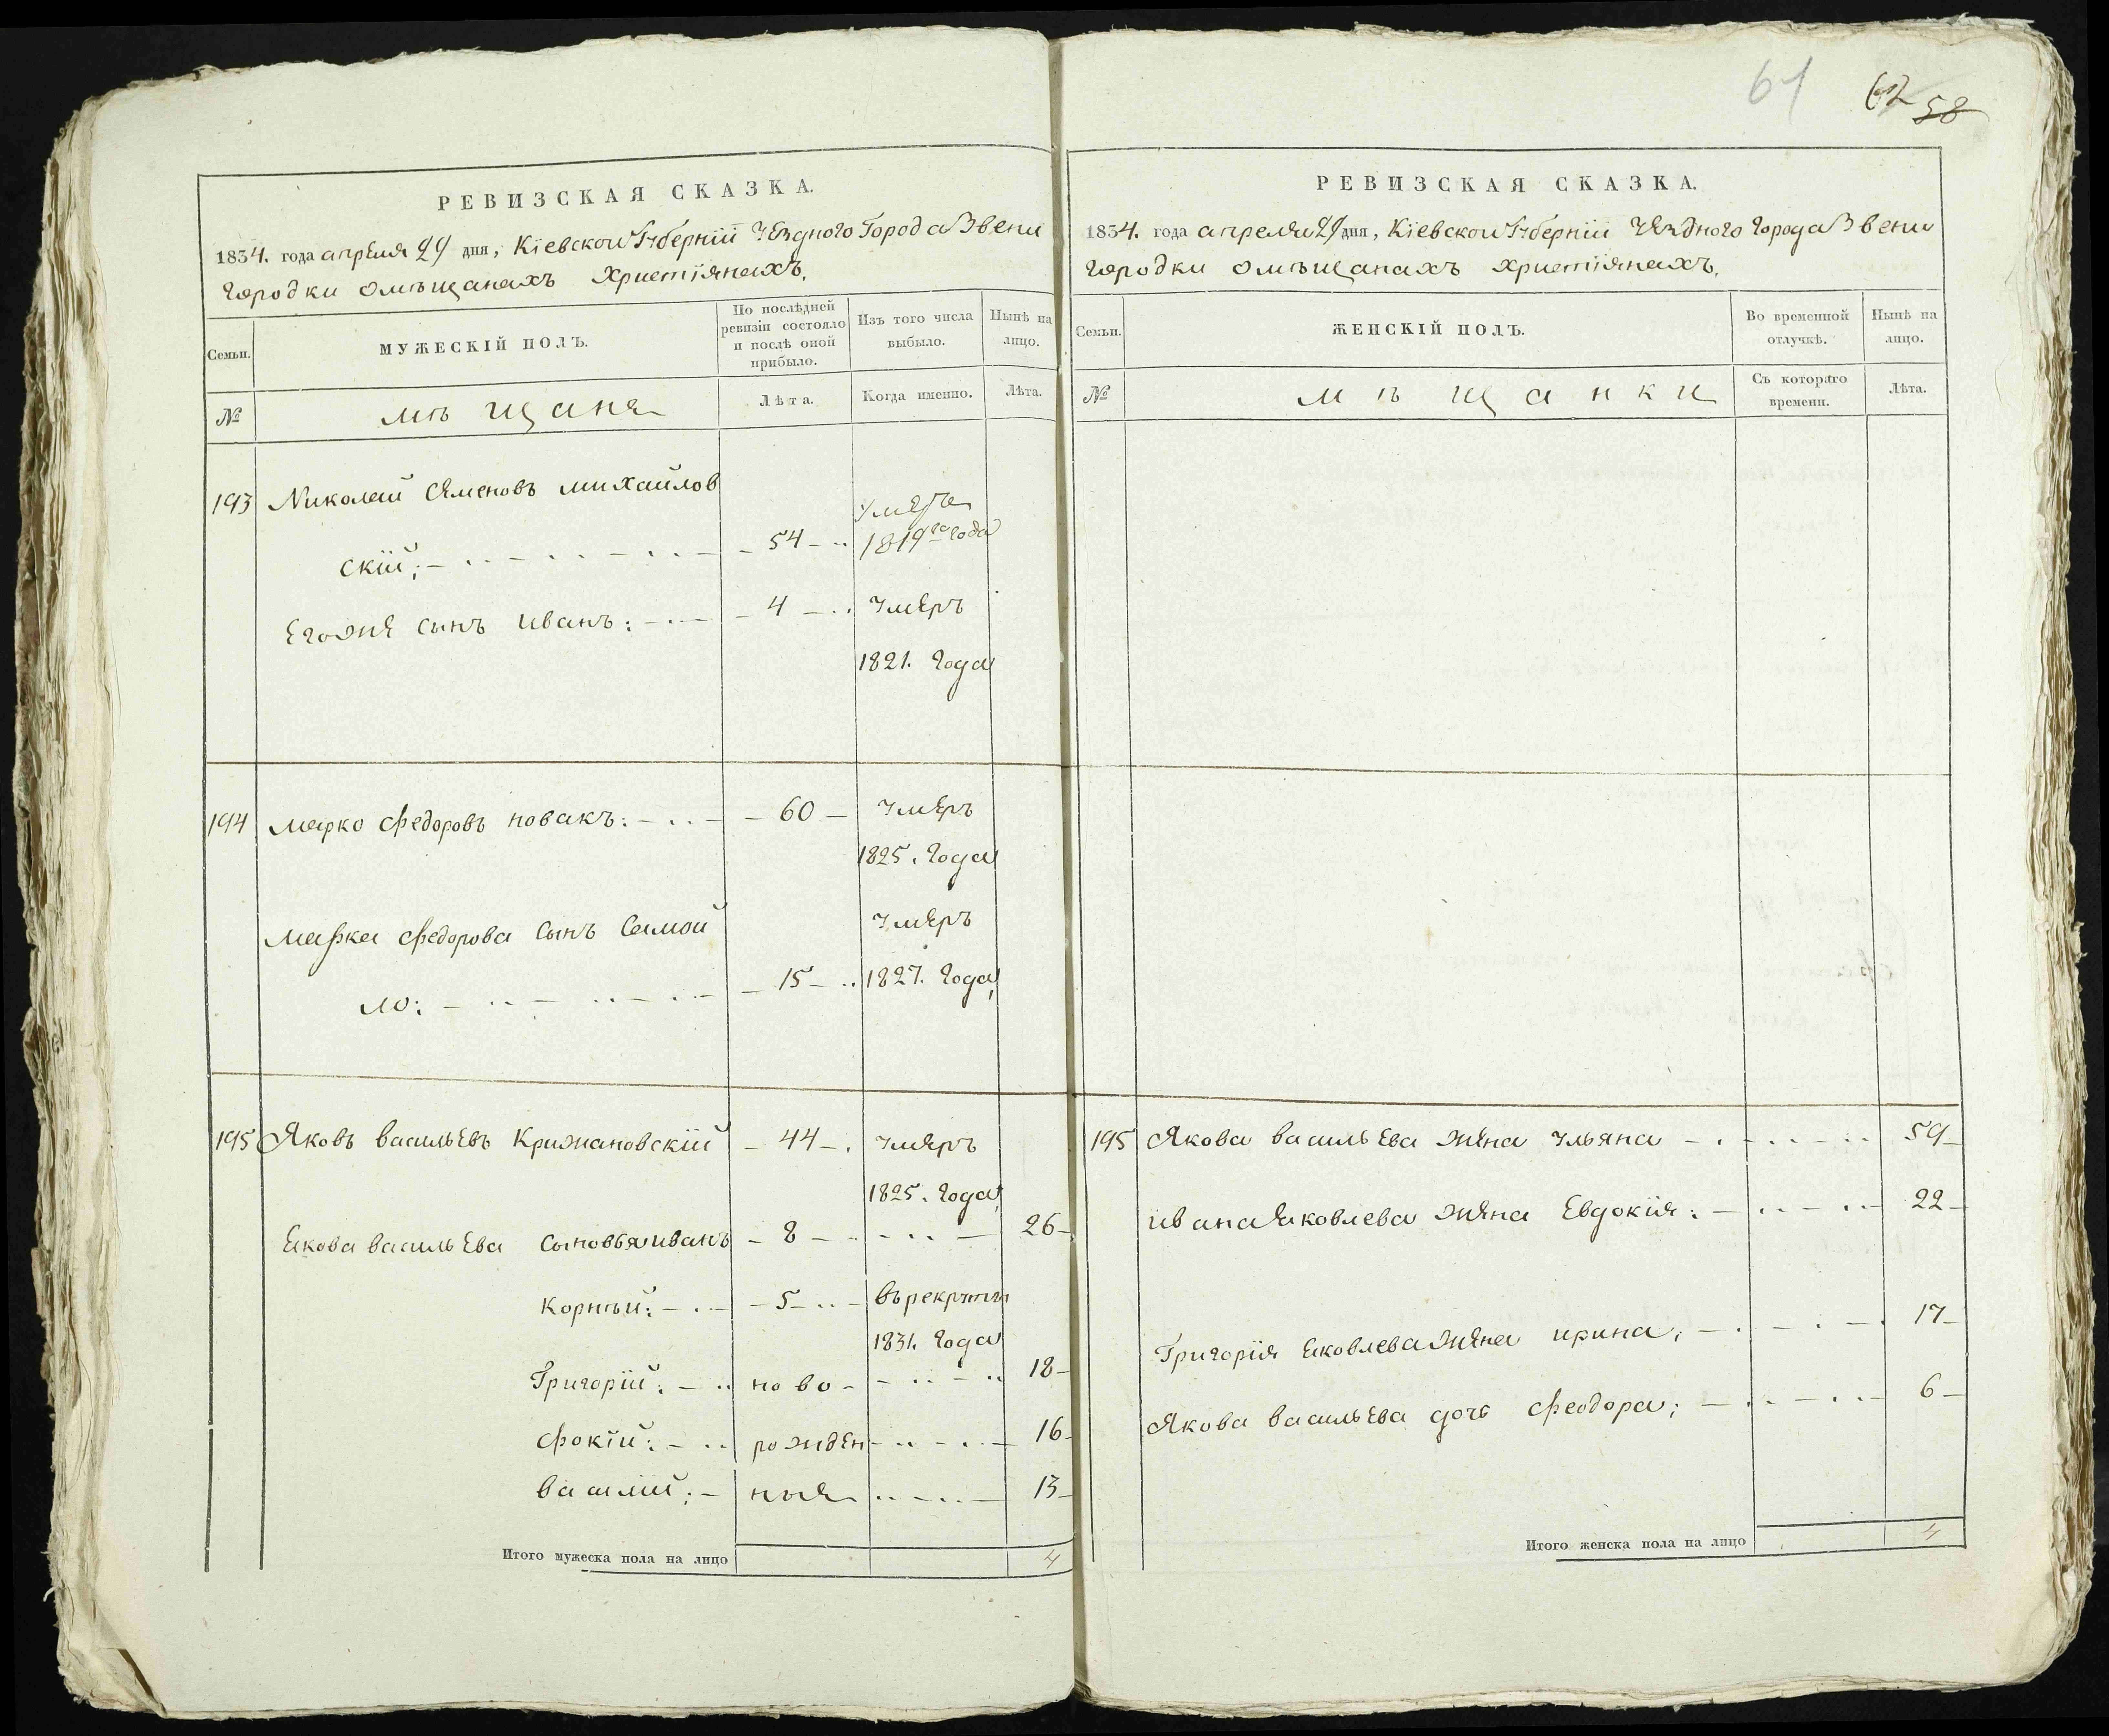 61
62 58
РЕВИЗСКАЯ СКАЗКА.
1834. года апреля 29 дня, Кіевской Губерніи Уезднаго Города Звени
городки омѣщанахъ христіянахъ.
Семьи.
МУЖЕСКІЙ ПОЛЪ.
По послѣдней ревизіи состояло и послѣ оной прибыло.
Изъ того числа выбыло.
Нынѣ на лицо.
№
мѣщане
Лѣта.
Когда именно.
Лѣта.
193 Николай Семеновъ михайлов
умре
скій; 54 1819го года
Егоже сынъ иванъ: 4 умеръ
1821. года
194 марко федоровъ новакъ: 60 умеръ
1825. года
марка федорова сынъ самой умеръ
ло: 15 1827. года
195 Яковъ васильевъ Крижановскій 44 умеръ
1825. года
Якова васильева сыновья иванъ 8 26
Корнѣй: 5 въ рекруты
1831. года
Григорій: ново 18
фокій: рожден 16
василій: ные 13
Итого мужеска пола на лицо 4
РЕВИЗСКАЯ СКАЗКА.
1834. года апреля 29 дня, Кіевской Губерніи Уезднаго города Звени
городки омѣщанахъ христіянахъ.
Семьи.
ЖЕНСКІЙ ПОЛЪ.
Во временной отлучкѣ.
Нынѣ на лицо.
№
мѣщанки
Съ котораго времени.
Лѣта.
195 Якова васильева жена Ульяна 59
ивана Яковлева жена Евдокія: 22
Григорія Яковлева жена ирина; 17
Якова васильева дочь феодора; 6
Итого женска пола на лицо 4